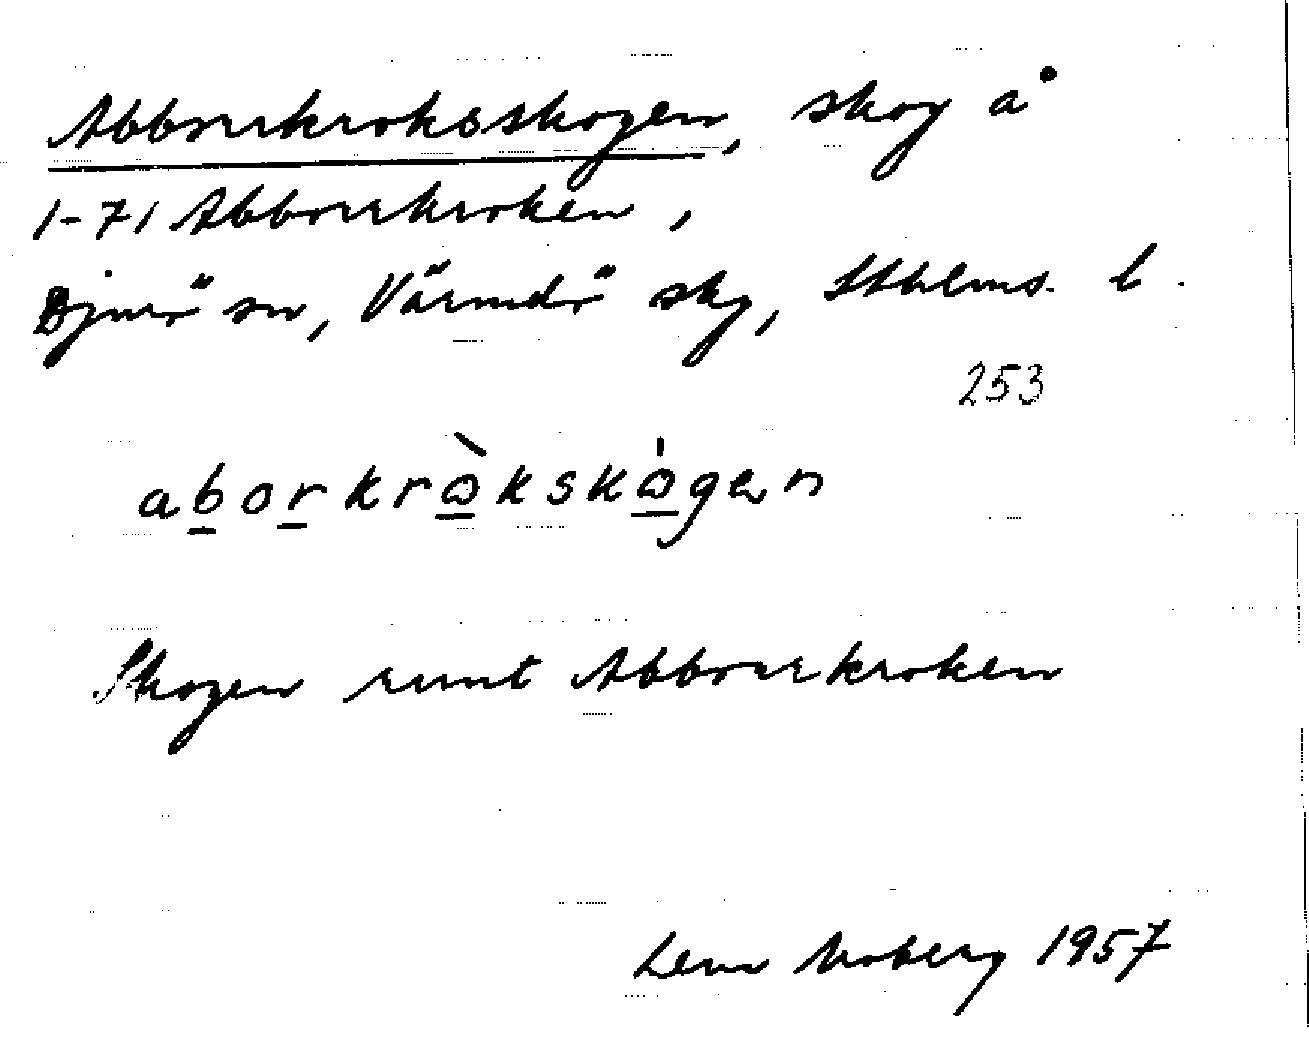 Abborrkroksskogen, skog å
1-71 Abborrkroken,
Djurö sn, Värmdö skg, Sthlms. l.
253
aborkrὼkskὼgen
Skogen runt Abborrkroken
Lena Moberg 1957